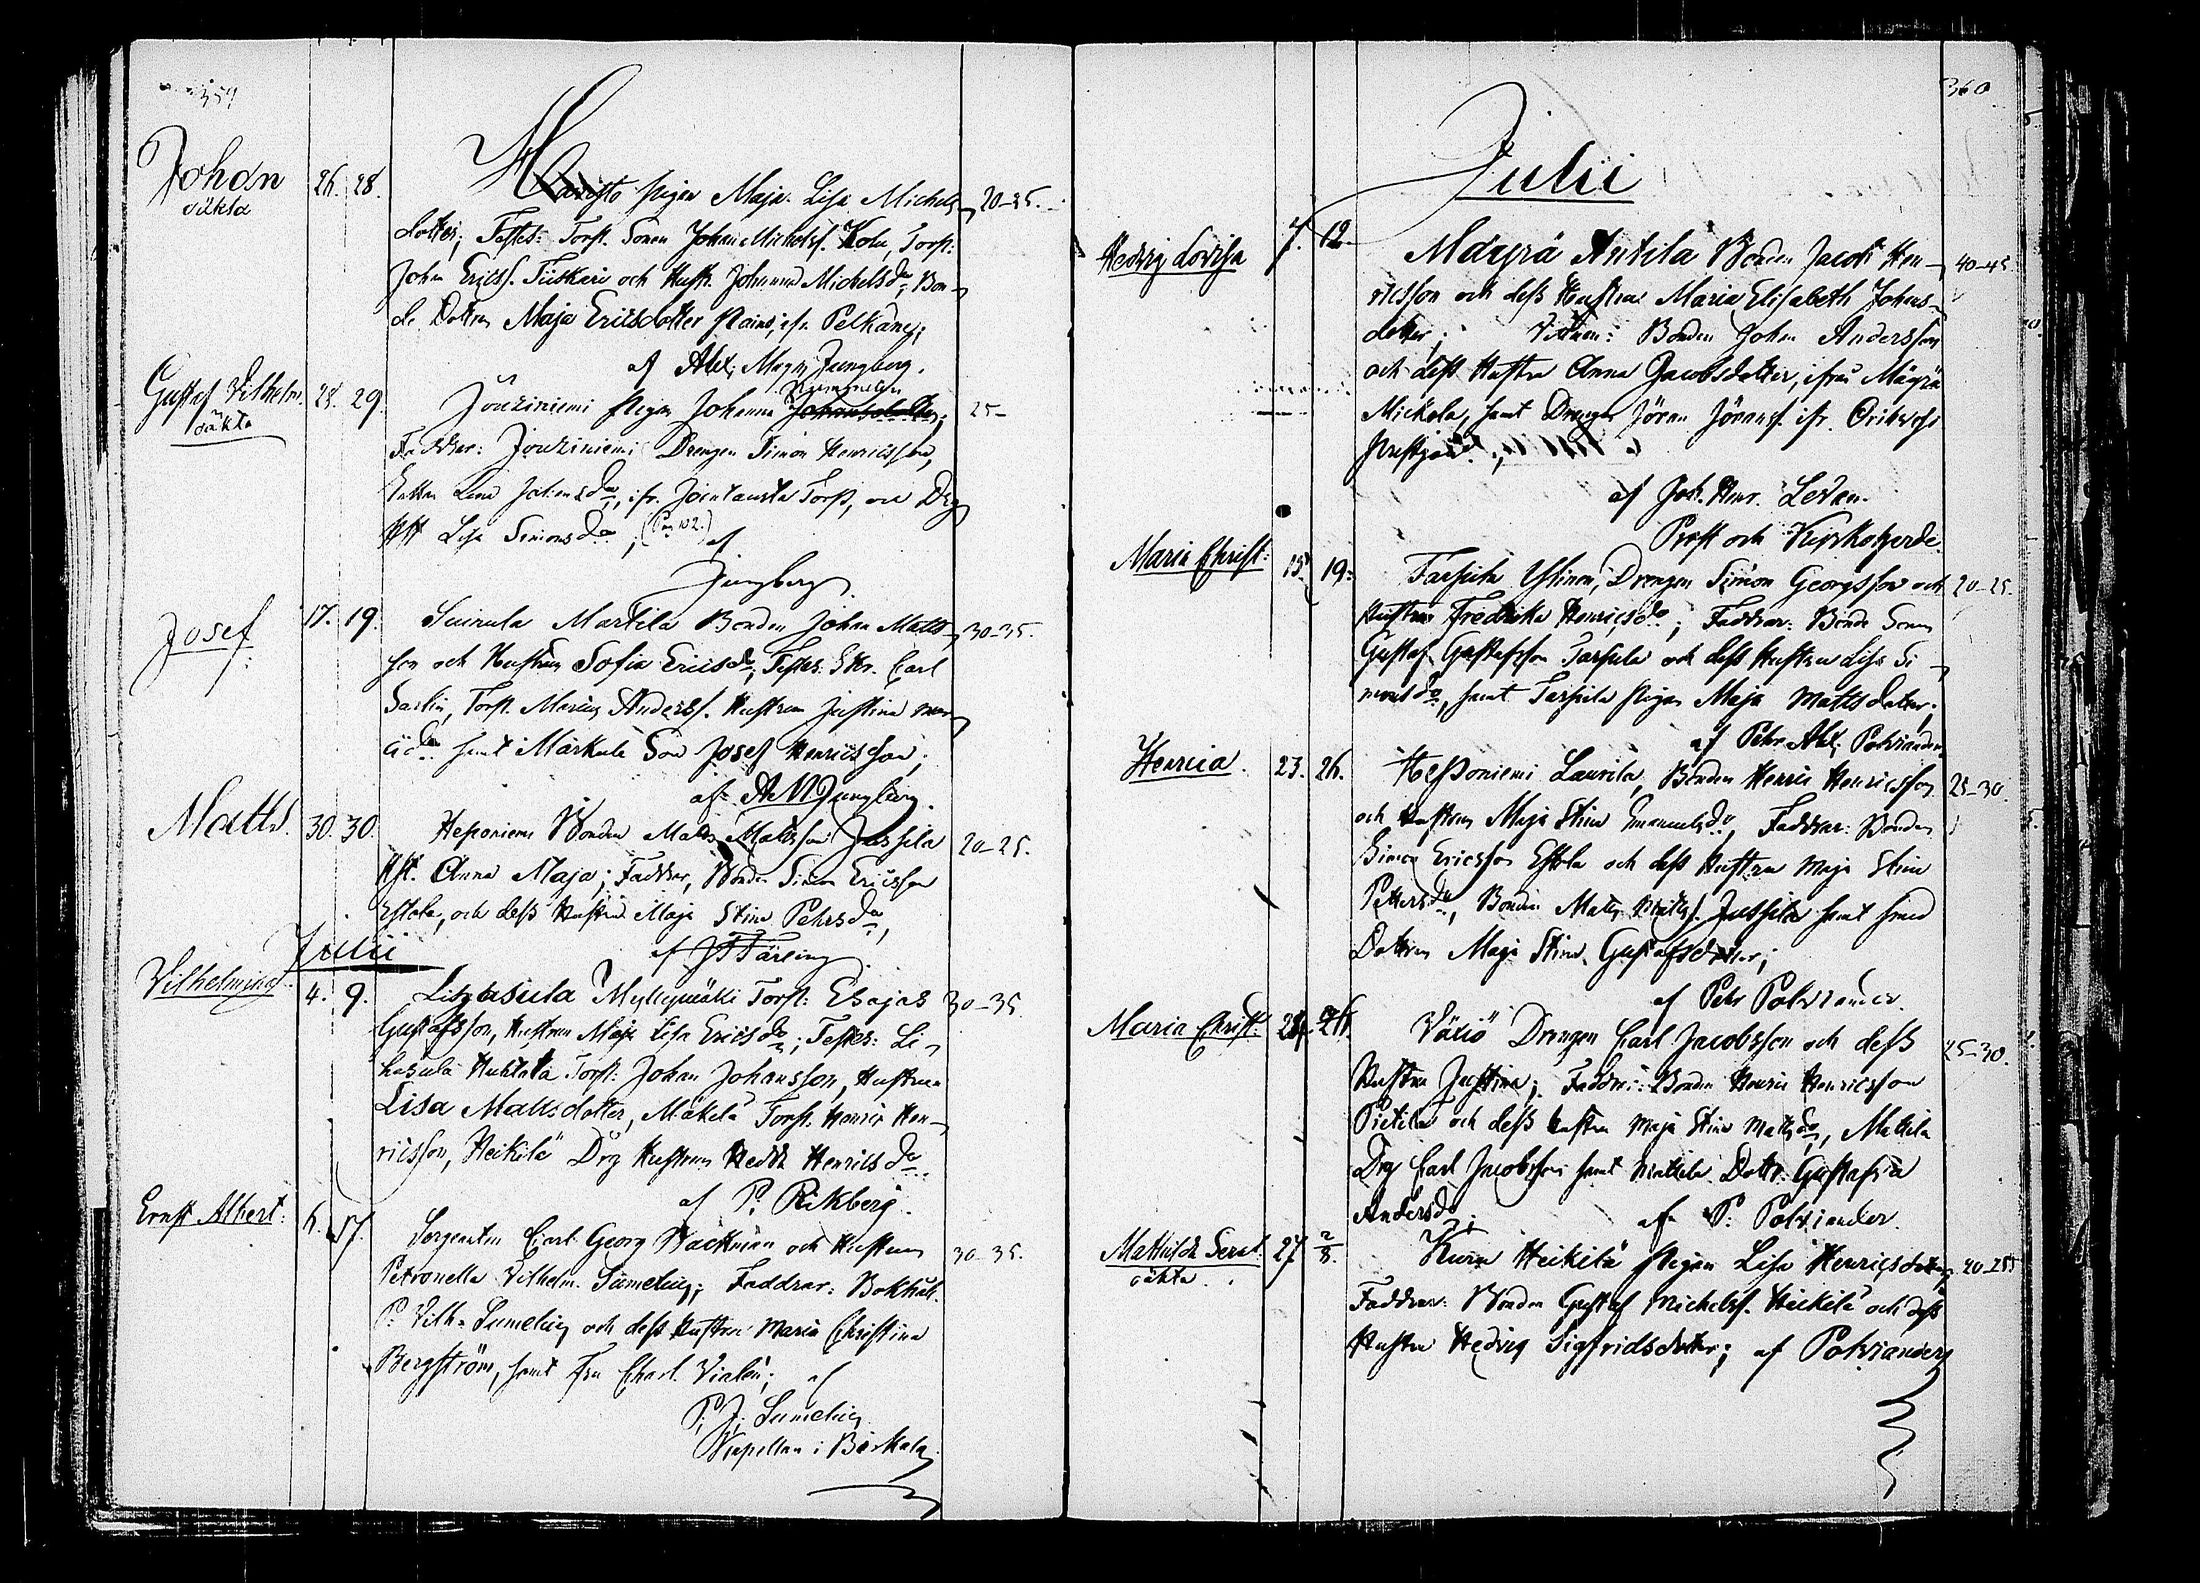 359
Johan 26. 28. pigan Maja Lisa Michels- 20-25.
oäkta
dotter; Testes: Torp. Sonen Johan Michelss. Kolu, Torp:
John Ericss. Tiiskari och Hustr. Johanna Michelsdr, Bon-
de Dottren Maja Ericsdotter ifr. Pelkäne;
af Alex. Magn. Jungberg.
Gustaf Vilhelm. 28. 29. Jouziniemi Pigan Johanna 25-
oäkta
Faddrar: Jouziniemi Drengen Simon Henricsson,
Lena Johansdr, ifr. Torp, Drg
Lisa Simonsdr; (Pag 102.) af
Jungberg
Josef 17. 19. Suinula Martila Bonden Johan Matts- 30-35.
son och Hustrun Sofia Ericsdr, Testes: Carl
Sarlin, Torp. Andersf. Hustrun Justina
samt Markula Son Josef Henricsson;
af AMJungberg.
Matts. 30. 30. Heponiemi Bonden Matts Mattsson Jussila 20-25.
Hst. Anna Maja; Faddrar, Bonden Simon Ericsson
Estola, och dess Hustru Maja Stina Pehrsdr,
Julii
Vilhelmina 4. 9. Myllymäki Torp: Esajas 30-35
Gustafsson, Hustrun Maja Lisa Ericsdr; Testes: Li-
hasula Huhtala Torp: Johan Johansson, Hustrun
Lisa Mattsdotter, Mäkelä Torp. Henric Hen-
ricsson, Heikilä Drg Hustrun Hedda Henricsdr.
af P. Rikberg.
Ernst Albert. 6. 17. Sergenten Carl Georg Wackman och Hustrun 30-35.
Petronella Vilhelm. Sumelius; Faddrar: Bokhåll.
P. Vilh. Sumelius och dess Hustru Maria Christina
Bergström, samt Fru Charl. Vialén; af
P. J. Sumelius
Kapellan i Birkala
360
Julii
Hedvig Lovisa 7. 12. Mäyrä Antila Bonden Jacob Hen- 40-45
ricsson och dess Hustru Maria Elisabeth Johans-
dotter; Vittnen: Bonden John Andersson
och dess Hustru Anna Jacobsdotter, ifrån Mäyrä
Mickola, samt Drengen Jöran Jöranss. ifr. Orihvesi
Prestgård;
af Joh. Henr. Levan.
Prost och Kyrkoherde.
Maria Christ: 15. 19. Tarpila Ylinen, Drengen Simon Georgsson och 20-25.
Hustrun Fredrika Henricsdr; Faddrar: Bonde Sonen
Gustaf Gustafsson Tarpila och dess Hustru Lisa Si-
monsdr, samt Tarpila Pigan Maja Mattsdotter;
af Pehr Alex. Polviander
Henrica. 23. 26. Heponiemi Laurila, Bonden Henric Henricsson 25-30.
och Hustrun Maja Stina Emanuelsdr, Faddrar: Bonden
Simon Ericsson Estola och dess Hustru Maja Stina
Pettersdr, Bonden Matts Mattss. Jussila samt
Dottren Maja Stina Gustafsdotter;
af Pehr Polviander.
Maria Christ. 24. 26. Växiö Drengen Carl Jacobsson och dess 25-30.
Hustru Justina; Faddr: Bonden Henric Henricsson
Pietilä och dess hustru Maja Stina Mattsdr, Mattila
Drg Carl Jacobsson samt Mattila Dottr. Gustafva
Andersdr; af P. Polviander.
Mathilda Serat. 27. 2/8. Heikilä Pigan Lisa Henricsdotter; 20-25
oäkta.
Faddrar: Bonden Gustaf Michelss. Heikilä och dess
Hustru Hedvig Sigfridsdotter; af Polviander